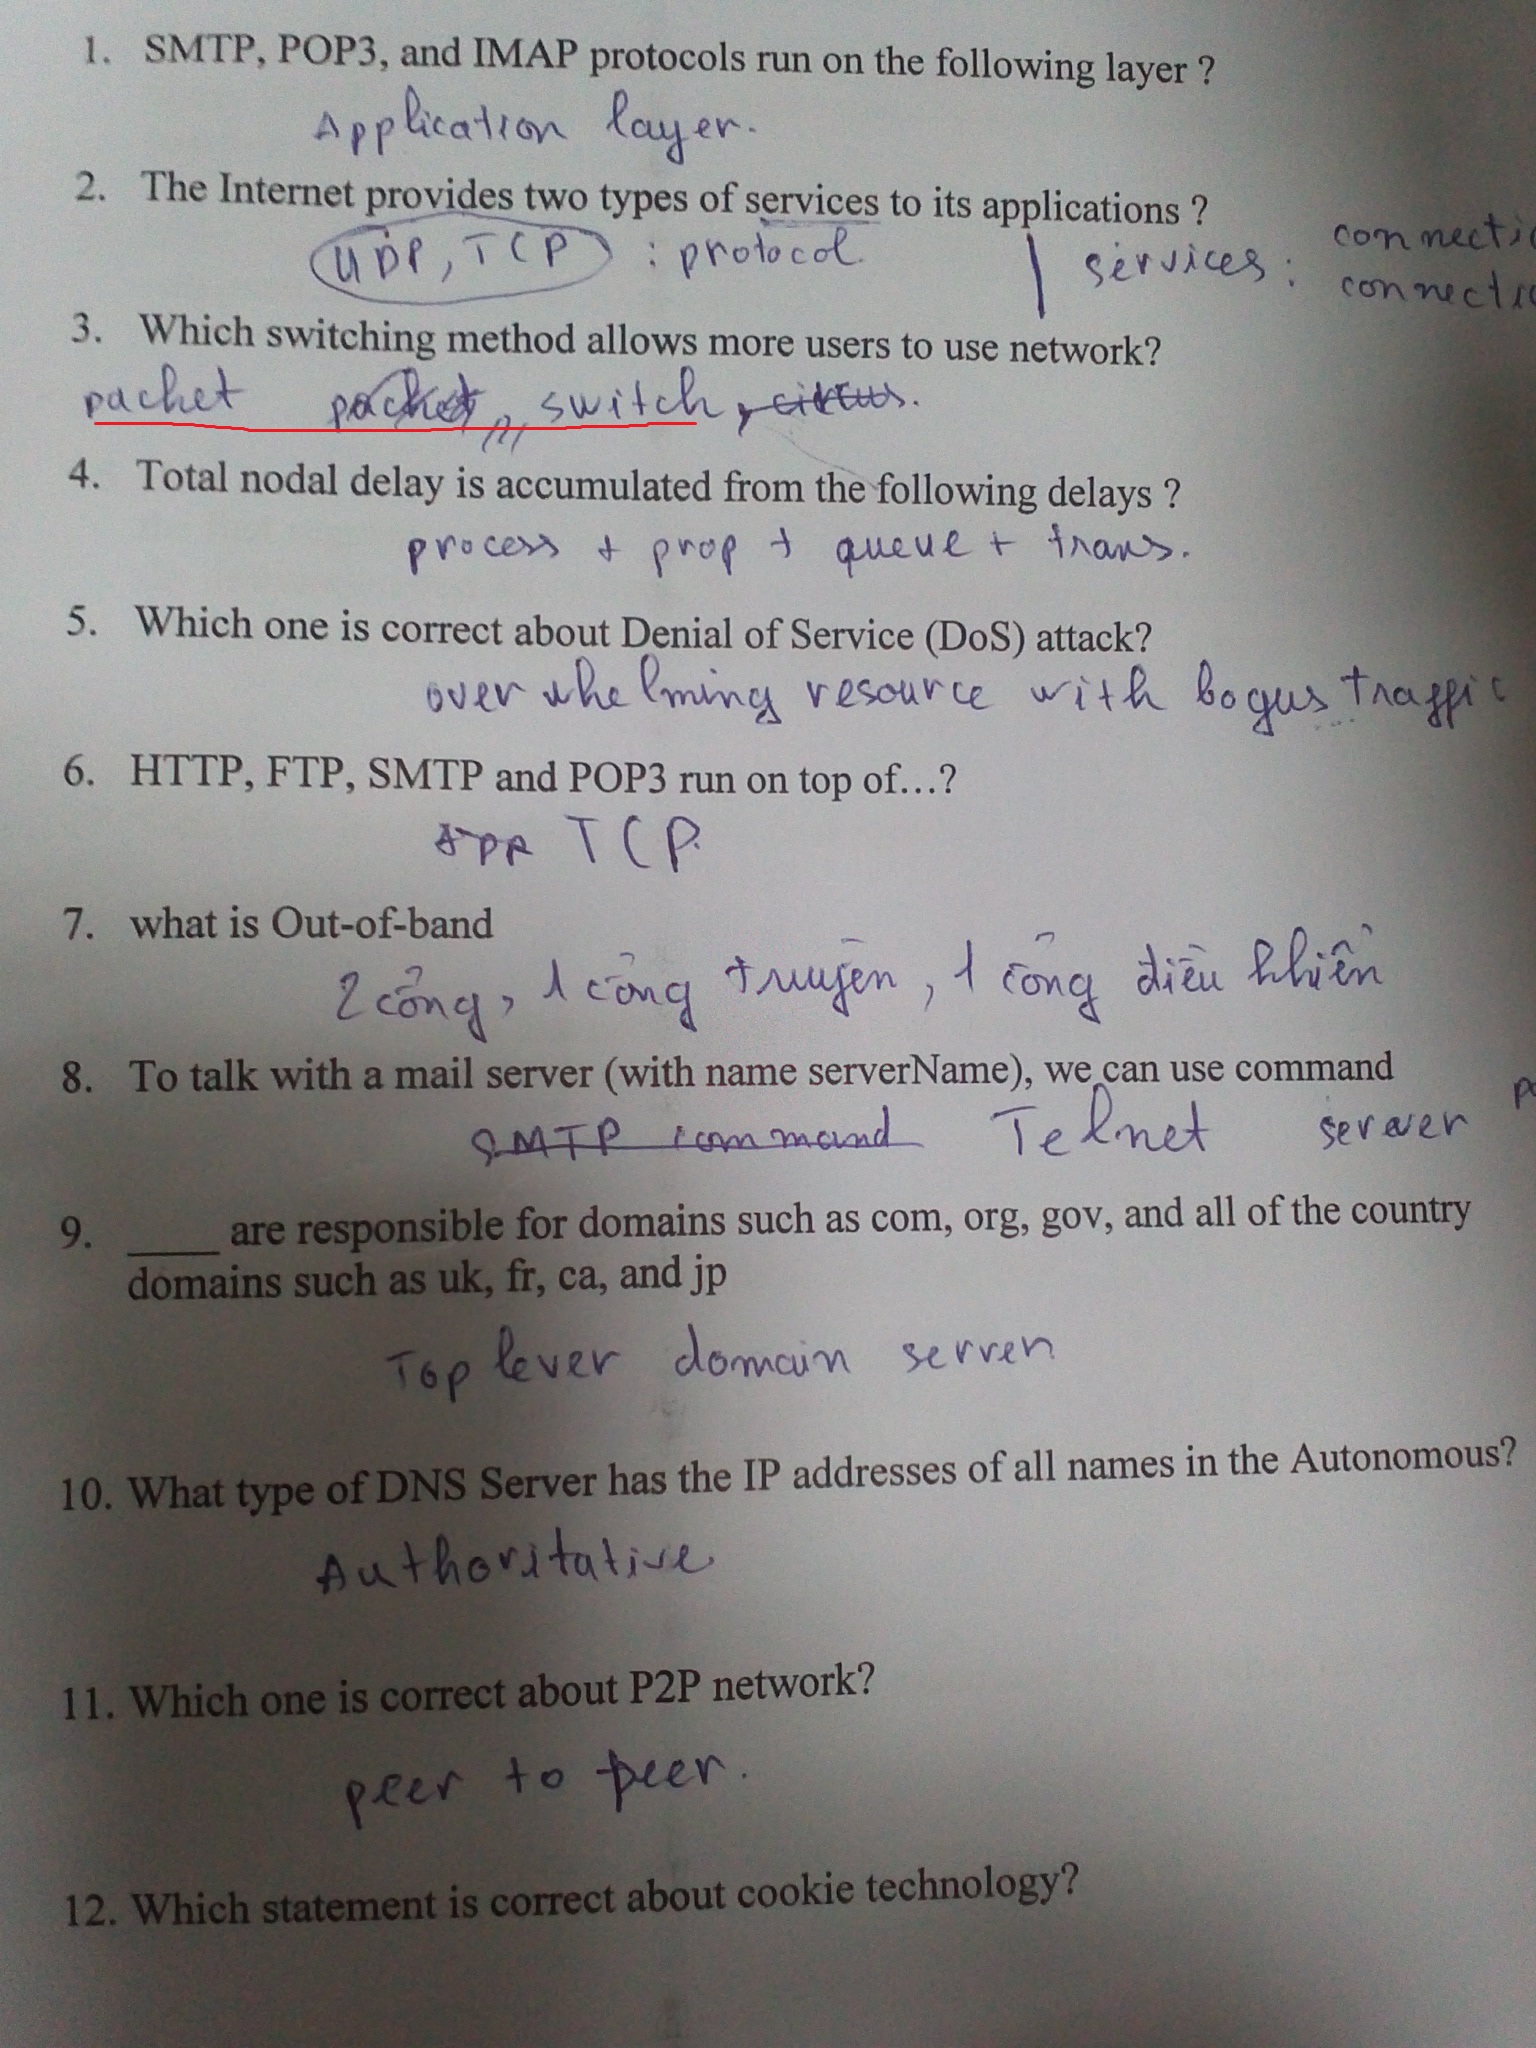 1. SMTP, POP3, and IMAP protocols run on the following layer ?
Application layer.
2. The Internet provides two types of services to its applications ?
UDP, TCP : protocol. | services : connecti
connecti
3. Which switching method allows more users to use network?
packet packet switch,
4. Total nodal delay is accumulated from the following delays ?
process + prop + queue + trans.
5. Which one is correct about Denial of Service (DoS) attack?
over whelming resource with bogus traffic
6. HTTP, FTP, SMTP and POP3 run on top of...?
TCP.
7. what is Out-of-band
2 cổng, 1 cổng truyền, 1 cổng điều khiển
8. To talk with a mail server (with name serverName), we can use command
SMTP command Telnet server
9. ____ are responsible for domains such as com, org, gov, and all of the country
domains such as uk, fr, ca, and jp
Top lever domain server
10. What type of DNS Server has the IP addresses of all names in the Autonomous?
Authoritative
11. Which one is correct about P2P network?
peer to peer.
12. Which statement is correct about cookie technology?